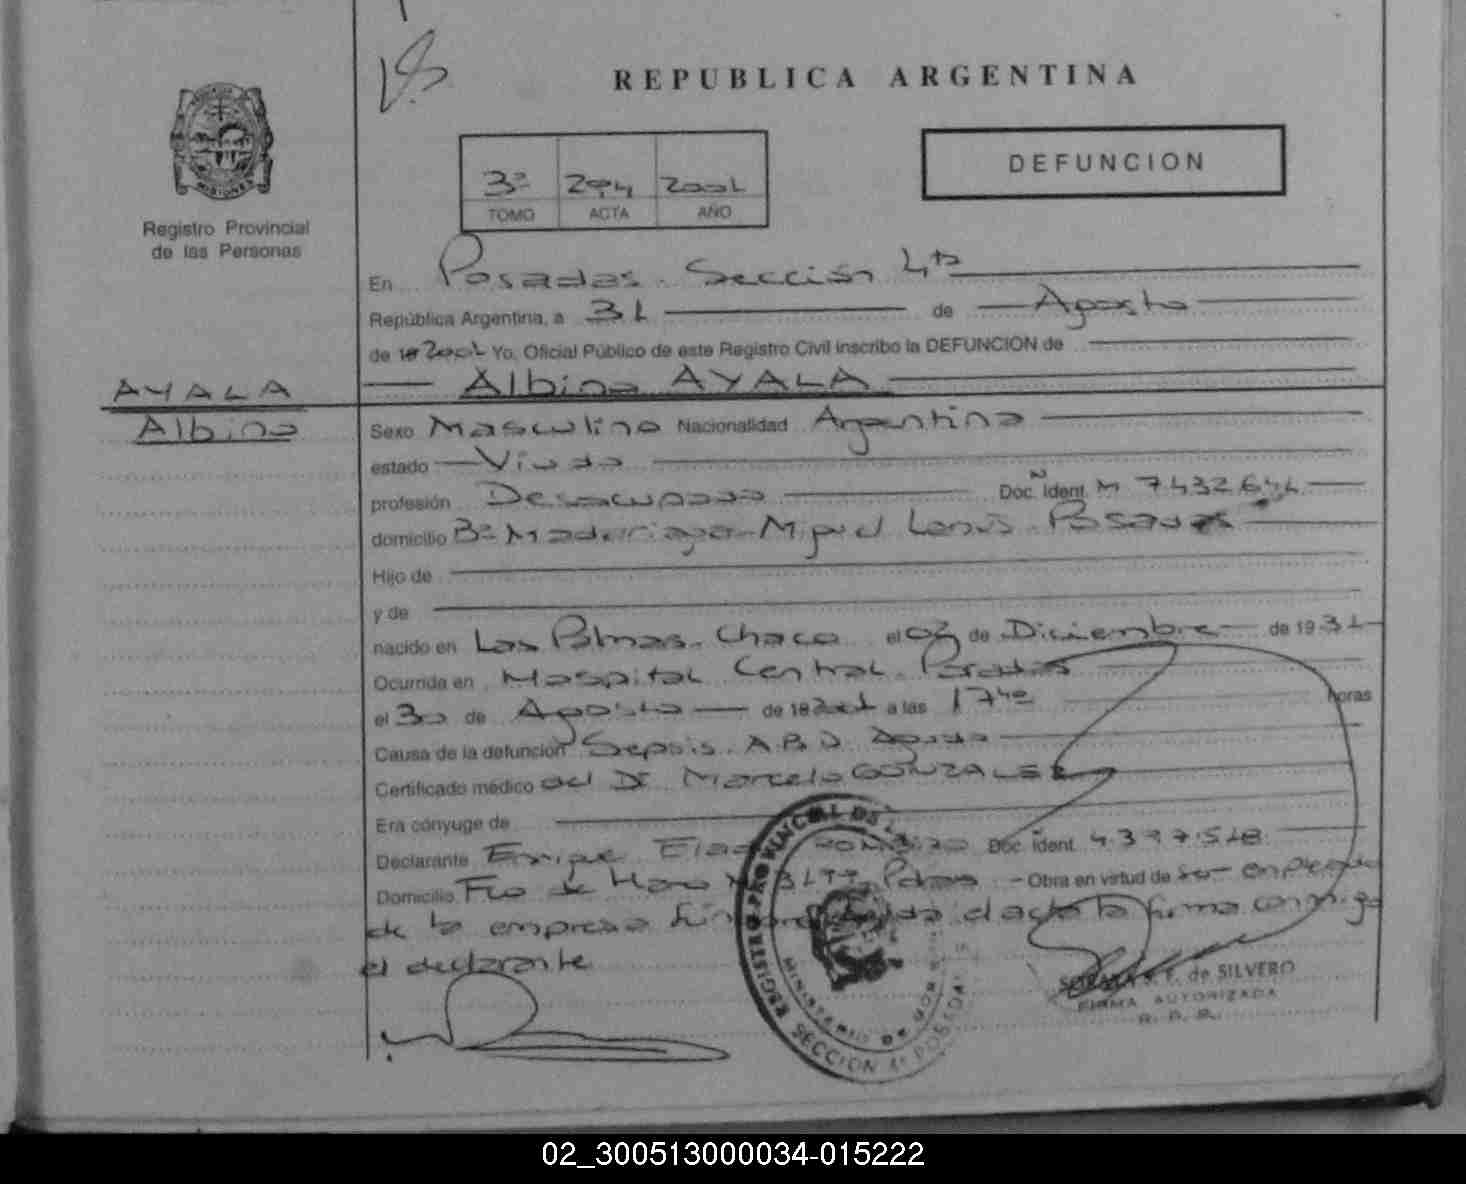 REPUBLICA ARGENTINA
DEFUNCION
3º 294 2001
TOMO ACTA AÑO
MISIONES
Registro Provincial
de las Personas
En Posadas. Sección 4ta
República Argentina, a 31 de Agosto
de 2001 Yo, Oficial Público de este Registro Civil inscribo la DEFUNCION de
Albino AYALA
AYALA
Albino
Sexo Masculino Nacionalidad Argentina
estado Viudo
profesión Desocupado Doc. Ident. M 7432644
domicilio Bº Madariaga - Miguel Lanús Posadas
Hijo de
y de
nacido en Las Palmas. Chaco el 02 de Diciembre de 1931
Ocurrida en Hospital Central Posadas
el 30 de Agosto de 2001 a las 17 40 horas
Causa de la defunción Sepsis. A.B.D. Agudo
Certificado médico del Dr. Marcelo GONZALEZ
Era cónyuge de
Declarante Enrique Doc. Ident. 4.397.518
Domicilio Fco de Haro Nº Pdas - Obra en virtud de ser empleado
de la empresa el acta la firma conmigo
el declarante
REGISTRO PROVINCIAL DE
MINISTERIO DE
SECCION 4ª POSADAS
de SILVERO
FIRMA AUTORIZADA
R. P. P.
02_300513000034-015222